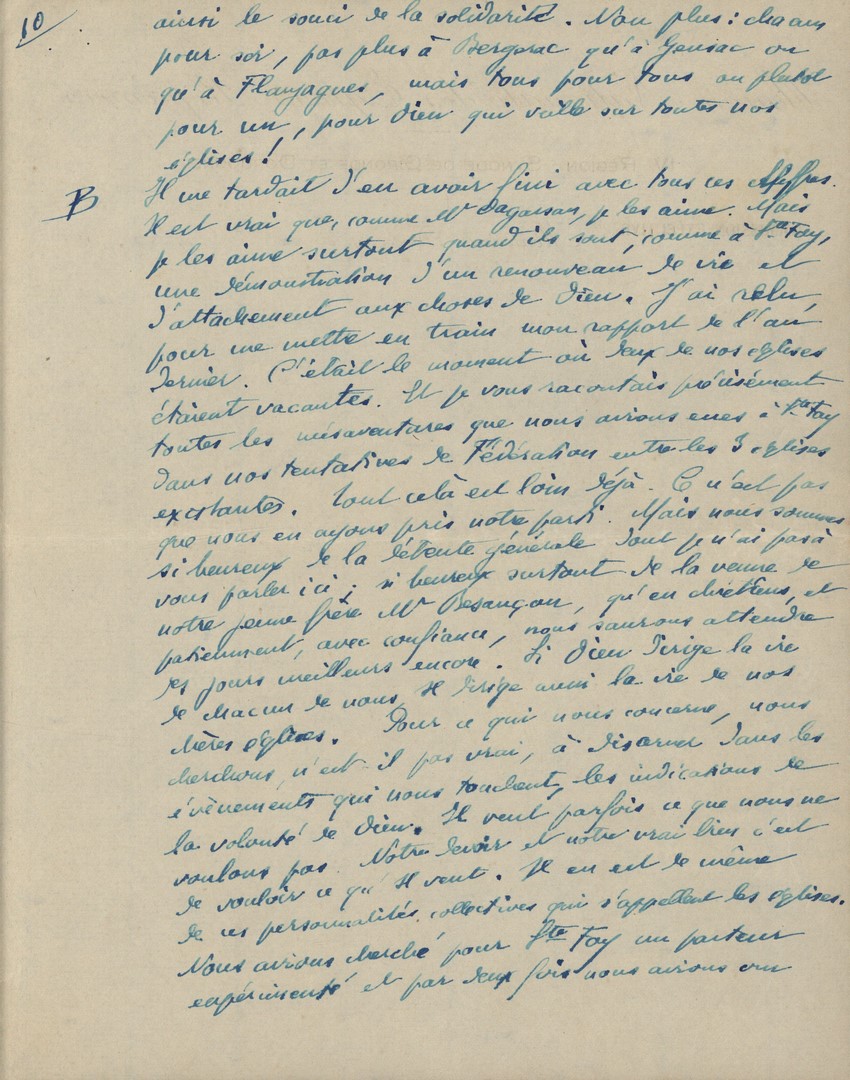 10
ainsi le souci de la solidarité. Non plus: chacun
pour soi, pas plus à Bergerac qu'à Gensac ou
qu'à Flaujagues, mais tous pour tous ou plutôt
pour un, pour Dieu qui veille sur toutes nos
églises!
B
Il me tardait d'en avoir fini avec tous ces chiffres.
Il est vrai que, comme Mr Dagassan, je les aime. Mais
je les aime surtout quand ils sont, comme à Ste Foy,
une démonstration d'un renouveau de vie et
d'attachement aux choses de Dieu. J'ai relu,
pour me mettre en train mon rapport de l'an
dernier. C'était le moment où deux de nos églises
étaient vacantes. Et je vous racontais précisément
toutes les mésaventures que nous avions eues à Ste Foy
dans nos tentatives de Fédération entre les 3 églises
existantes. Tout celà est loin déjà. Ce n'est pas
que nous en ayons pris notre parti. Mais nous sommes
si heureux de la détente générale dont je n'ai pas à
vous parler ici; si heureux surtout de la venue de
notre jeune frère Mr Besançon, qu'en chrétiens, et
patiemment, avec confiance, nous saurons attendre
des jours meilleurs encore. Si Dieu dirige la vie
de chacun de nous, Il dirige aussi la vie de nos
chères églises. Pour ce qui nous concerne, nous
cherchons, n'est-il pas vrai, à discerner dans les
évènements qui nous touchent, les indications de
la volonté de Dieu. Il veut parfois ce que nous ne
voulons pas. Notre devoir et notre vrai bien c'est
de vouloir ce qu'Il veut. Il en est de même
de ces personnalités collectives qui s'appellent les églises.
Nous avions cherché pour Ste Foy un pasteur
expérimenté et par deux fois nous avions cru